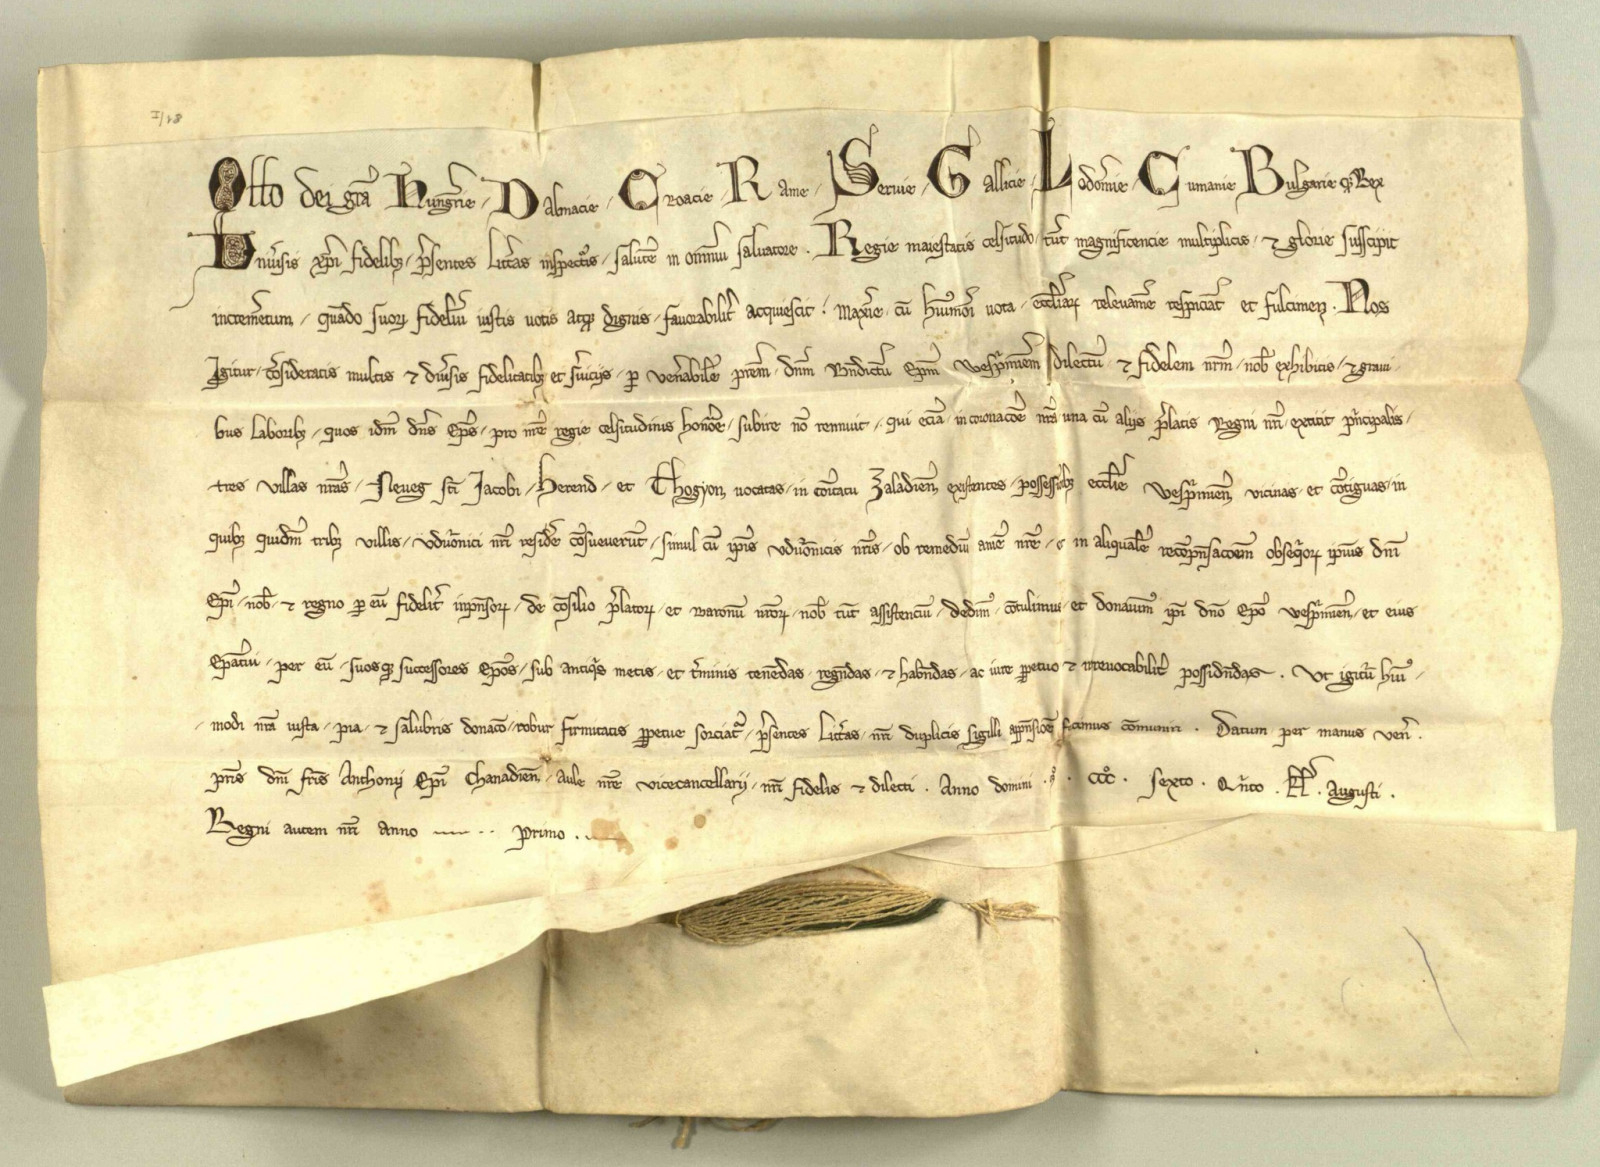 I/18
Otto dei gr̄a Hungͬie / Dalmacie / Croacie / Rame / Servie / Gallicie / Lodom̄ie / Cumanie Bulgarie qꝫ Rex
Vniv͛sis xp̄i fidelibꝫ / p̄sentes litt͛as inspectͦis / salutē in om̄iū salvatore . Regie maiestatis celsitudo / tūc magnificencie multiplicis / ⁊ glorie suscipit
incrēmetum / quādo suoꝝ fideliū iustis votis atqꝫ dignis / favorabilit͛ acquiescit / maxīe cū hui᷒mōi vota / eccl̄iaꝝ relevamē respiciāt et fulcimen . Nos
Igitur / cōsideratis multis ⁊ div͛sis fidelitatibꝫ et s͛viciis / ꝑ ven͛abilē pr̄em / dn̄m Bn̄dictū Ep̄m wesp̄miēn̄ dilectū ⁊ fidelem nr̄m / nob̄ exhibicis / ⁊ gravi-
bus laboribꝫ / quos idm̄ dn̄s Ep̄s / pro nr̄e regie celsitudinis honōe / subire nō rennuit / qui eciā in coronacōe nr̄a una cū aliis p̄latis Regni nr̄i extitit p̄ncipalis /
tres villas nr̄as / Neveg sc̄i Jacobi / Herend / et Thogyon vocatas / in cōitatu Zaladien̄ existentes / possessiōibꝫ eccl̄ie wesp̄mien̄ vicinas et cōtiguas / in
quibꝫ quidm̄ tribꝫ villis / vdv͛nici nr̄i residē cōsueverūt / simul cū ip̄is vdv͛nicis nr̄is / ob remediū aīe nr̄e / ⁊ in aliqualē recōpn̄sacōem obseqͥoꝝ ipius dn̄i
Ep̄i / nob̄ ⁊ regno ꝑ eū fidelit͛ inpn̄soꝝ / de cōsilio p̄latoꝝ et Baronū nr̄oꝝ / nob̄ tūc assistenciū / dedim᷒ / cōtulimus et donavim᷒ ip̄i dn̄o Ep̄o wesp̄mien̄ / et eius
Ep̄atui / per eū / suosqꝫ successores Ep̄os / sub antiqͥs metis / et t͛minis tenēdas / regn̄das / ⁊ habn̄das / ac iure ꝑpetuo ⁊ irrevocabilit͛ possidn̄das . Ut igit͛ hui᷒ /
modi nr̄a iusta / pia / ⁊ salubris donacō / robur firmitatis ꝑpetue sorciat͛ / p̄sentes litt͛as / nr̄i duplicis sigilli appn̄sioē fecimus cōmuniri . Datum per manus ven͛ .
pr̄is dn̄i fr̄is Anthonij Ep̄i Chanadien̄ / aule nr̄e vicecancellarij / nr̄i fidelis ⁊ dilecti . Anno domini . M̊ . CCC̊ . sexto . Qͥnto . Kl̄ . Augusti .
Regni autem nr̄i anno primo .